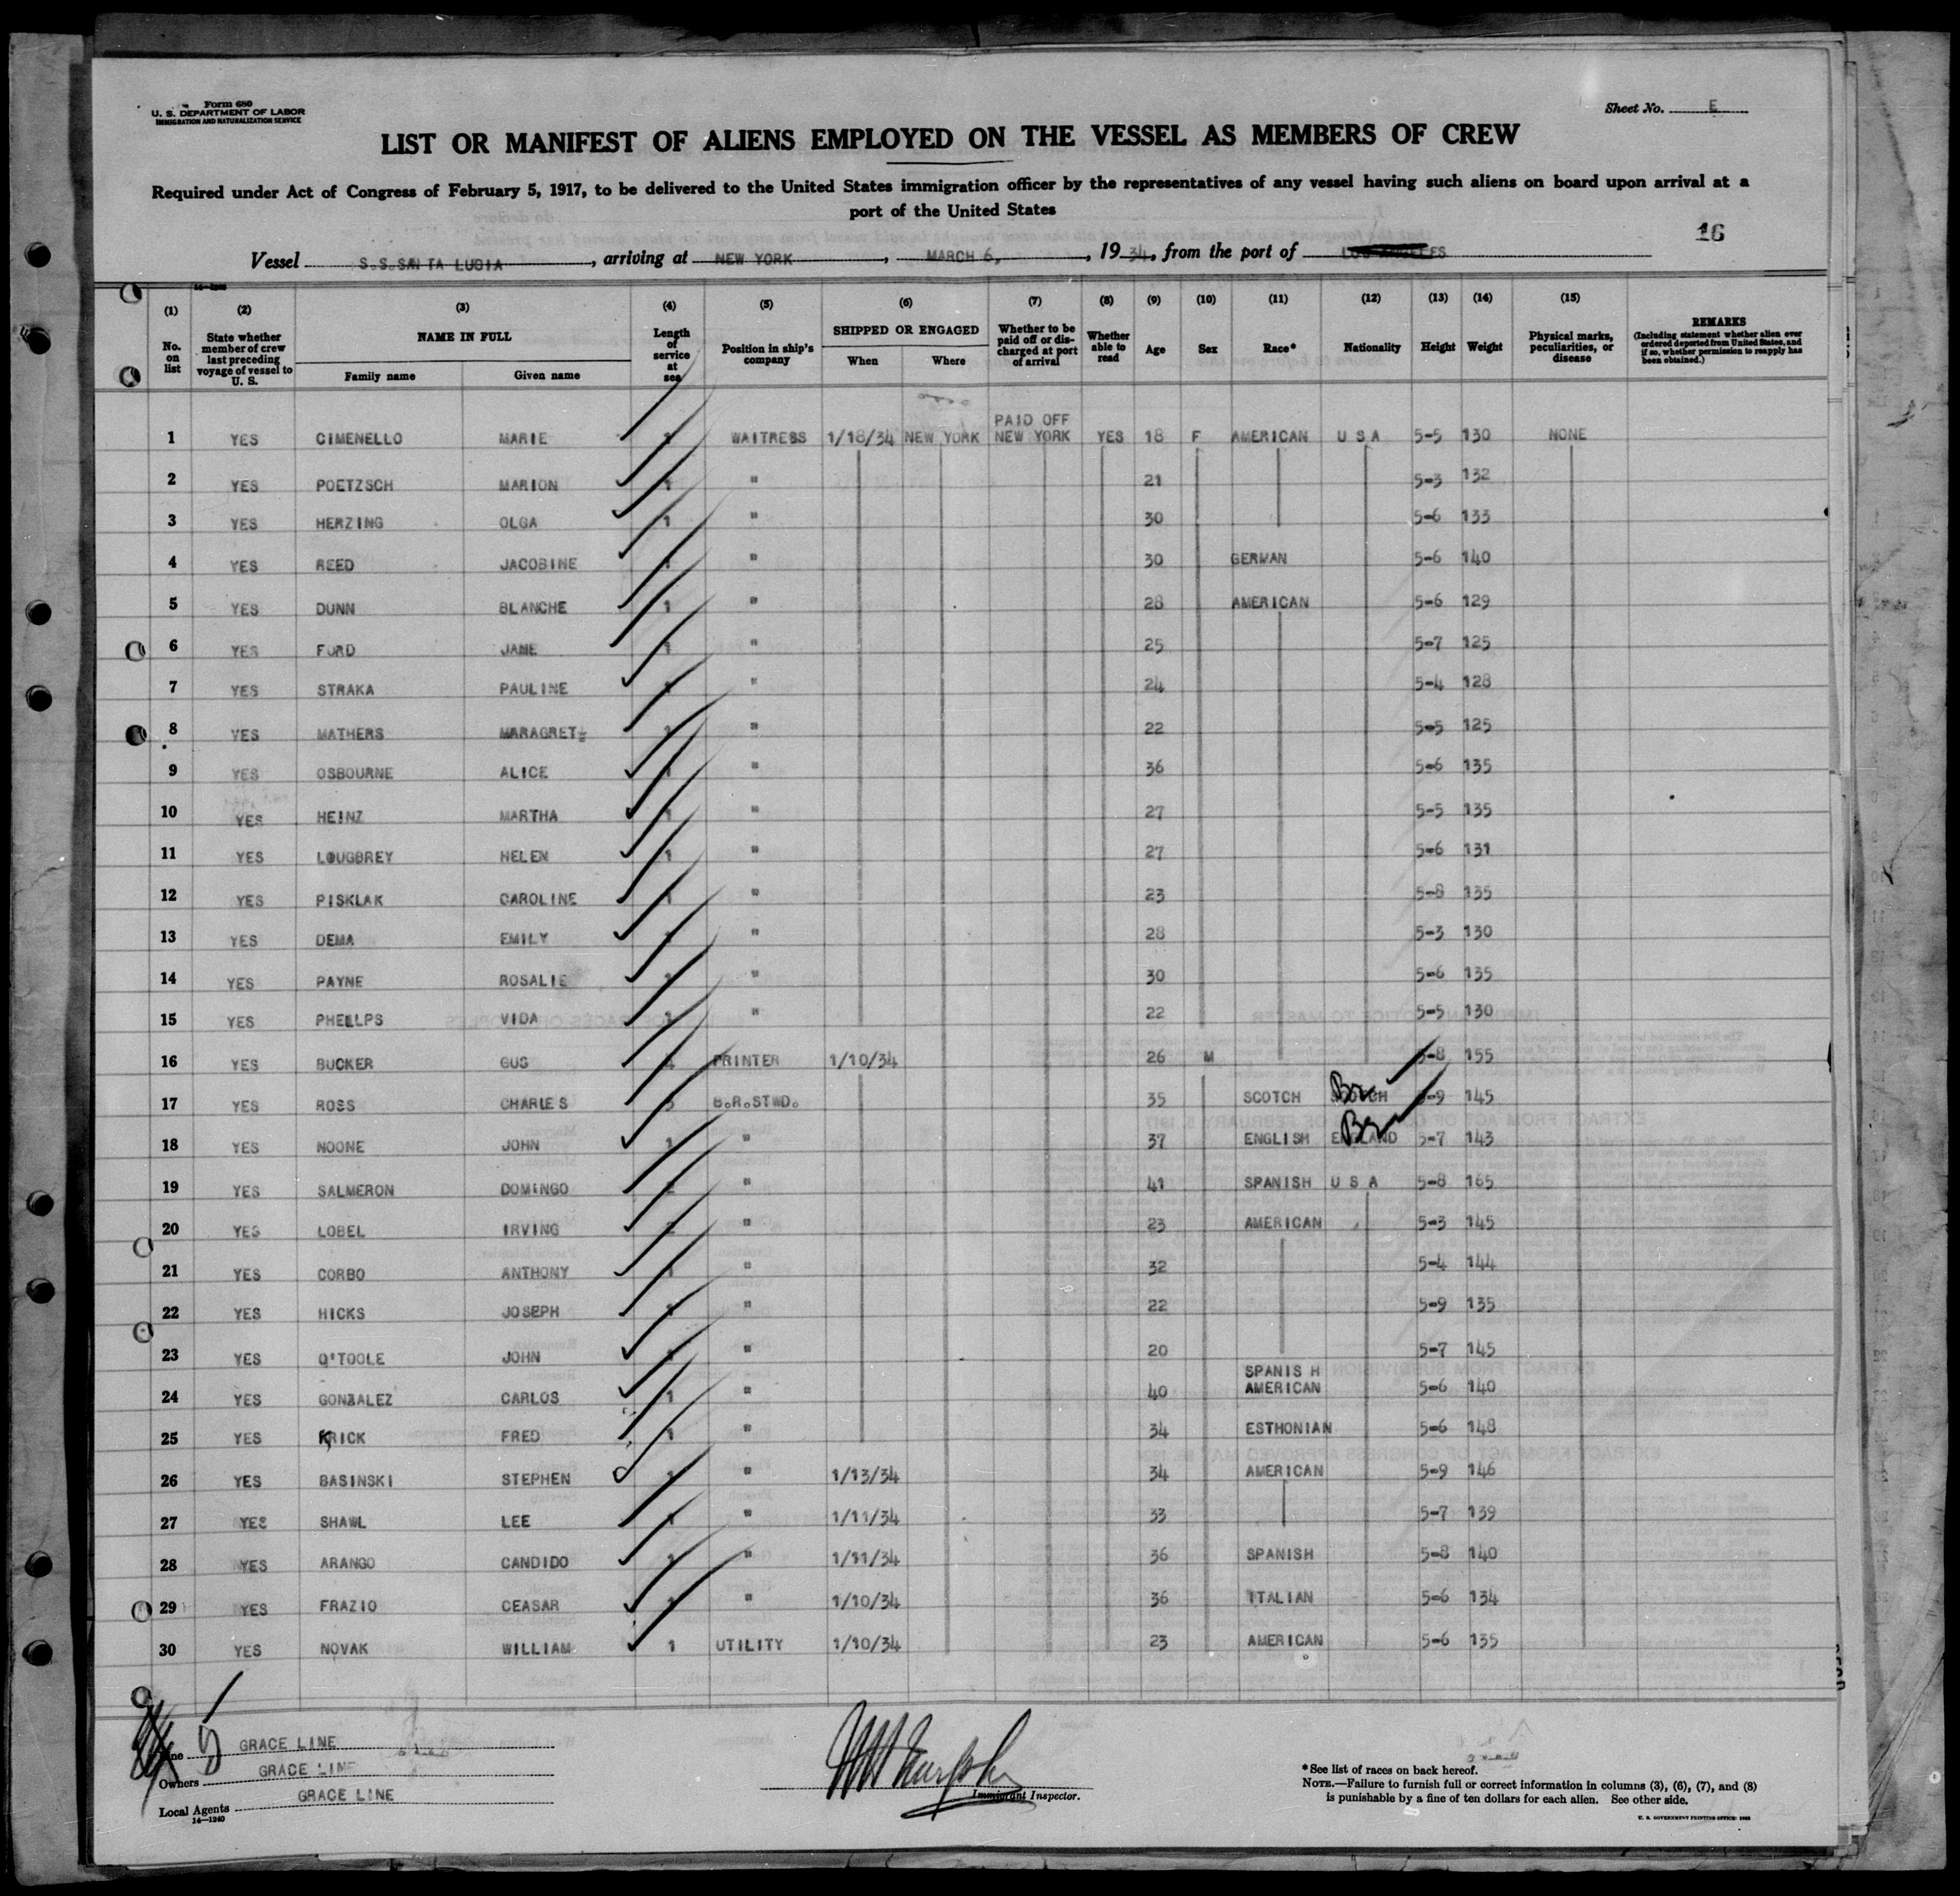 Form 680
U. S. DEPARTMENT OF LABOR
IMMIGRATION AND NATURALIZATION SERVICE
Sheet No. E
LIST OR MANIFEST OF ALIENS EMPLOYED ON THE VESSEL AS MEMBERS OF CREW
Required under Act of Congress of February 5, 1917, to be delivered to the United States immigration officer by the representatives of any vessel having such aliens on board upon arrival at a
port of the United States
16
Vessel S.S.SANTA LUCIA, arriving at NEW YORK, MARCH 6, 1934, from the port of LOS ANGELES
(1) No. on list
(2) State whether member of crew last preceding voyage of vessel to U. S.
(3) NAME IN FULL Family name Given name
(4) Length of service at sea
(5) Position in ship's company
(6) SHIPPED OR ENGAGED When Where
(7) Whether to be paid off or discharged at port of arrival
(8) Whether able to read
(9) Age
(10) Sex
(11) Race*
(12) Nationality
(13) Height
(14) Weight
(15) Physical marks, peculiarities, or disease
REMARKS (Including statement whether alien ever ordered deported from United States, and if so, whether permission to reapply has been obtained.)
1 YES CIMENELLO MARIE 1 WAITRESS 1/18/34 NEW YORK PAID OFF NEW YORK YES 18 F AMERICAN U S A 5-5 130 NONE
2 YES POETZSCH MARION 1 " 21 5-3 132
3 YES HERZING OLGA 1 " 30 5-6 133
4 YES REED JACOBINE 1 " 30 GERMAN 5-6 140
5 YES DUNN BLANCHE 1 " 28 AMERICAN 5-6 129
6 YES FORD JANE 1 " 25 5-7 125
7 YES STRAKA PAULINE 1 " 24 5-4 128
8 YES MATHERS MARAGRET 1 " 22 5-5 125
9 YES OSBOURNE ALICE 1 " 36 5-6 135
10 YES HEINZ MARTHA 1 " 27 5-5 135
11 YES LOUGBREY HELEN 1 " 27 5-6 131
12 YES PISKLAK CAROLINE 1 " 23 5-8 135
13 YES DEMA EMILY " 28 5-3 130
14 YES PAYNE ROSALIE 1 " 30 5-6 135
15 YES PHELLPS VIDA 1 " 22 5-5 130
16 YES BUCKER GUS 4 PRINTER 1/10/34 26 M 5-8 155
17 YES ROSS CHARLES 3 B.R.STWD. 35 SCOTCH SCOTCH Br 5-9 145
18 YES NOONE JOHN 1 " 37 ENGLISH ENGLAND Br 5-7 143
19 YES SALMERON DOMINGO 2 " 41 SPANISH U S A 5-8 165
20 YES LOBEL IRVING 2 " 23 AMERICAN 5-3 145
21 YES CORBO ANTHONY 1 " 32 5-4 144
22 YES HICKS JOSEPH 1 " 22 5-9 135
23 YES O'TOOLE JOHN 1 " 20 5-7 145
24 YES GONZALEZ CARLOS 1 " 40 SPANIS H AMERICAN 5-6 140
25 YES KRICK FRED 1 " 34 ESTHONIAN 5-6 148
26 YES BASINSKI STEPHEN 1 " 1/13/34 34 AMERICAN 5-9 146
27 YES SHAWL LEE 1 " 1/11/34 33 5-7 139
28 YES ARANGO CANDIDO 1 " 1/11/34 36 SPANISH 5-8 140
29 YES FRAZIO CEASAR 1 " 1/10/34 36 ITALIAN 5-6 134
30 YES NOVAK WILLIAM 1 UTILITY 1/10/34 23 AMERICAN 5-6 135
5
Line GRACE LINE
Owners GRACE LINE
Local Agents GRACE LINE
14—1240
Immigrant Inspector.
*See list of races on back hereof.
NOTE.—Failure to furnish full or correct information in columns (3), (6), (7), and (8)
is punishable by a fine of ten dollars for each alien. See other side.